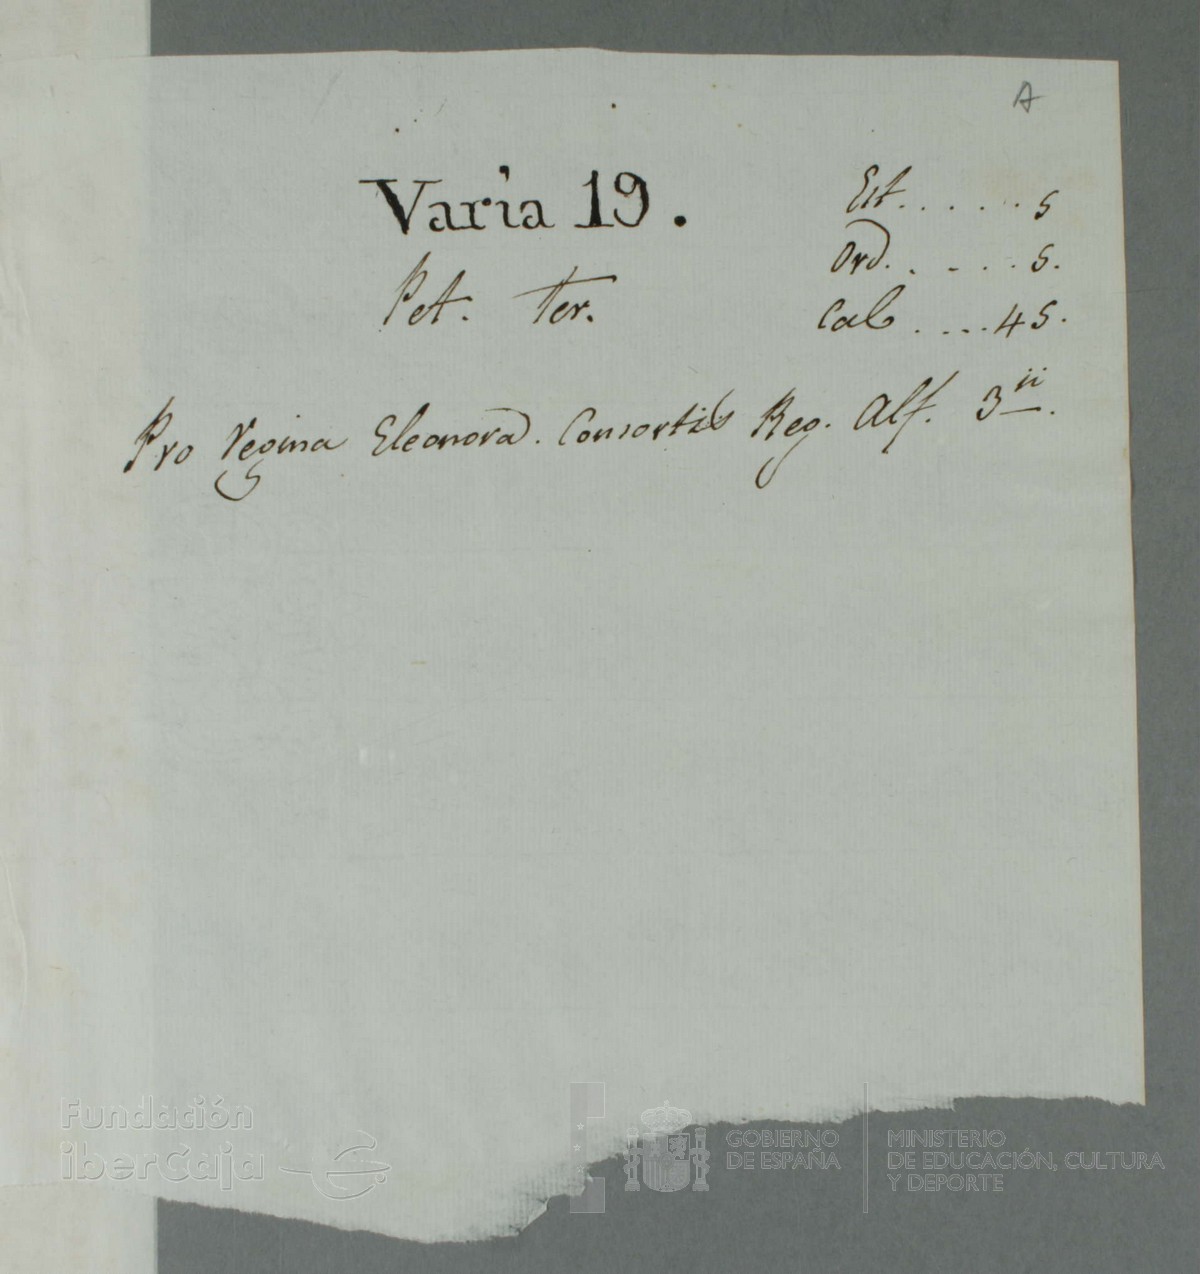 A
Varia 19.
Est. . . . . . 5
Pet. Ter.
Ord. . . . . . 5.
Cal . . . . 45.
Pro Regina Eleonora. Consortis Reg. Alf. 3ii.
Fundación
iberCaja
GOBIERNO
DE ESPAÑA
MINISTERIO
DE EDUCACIÓN, CULTURA
Y DEPORTE